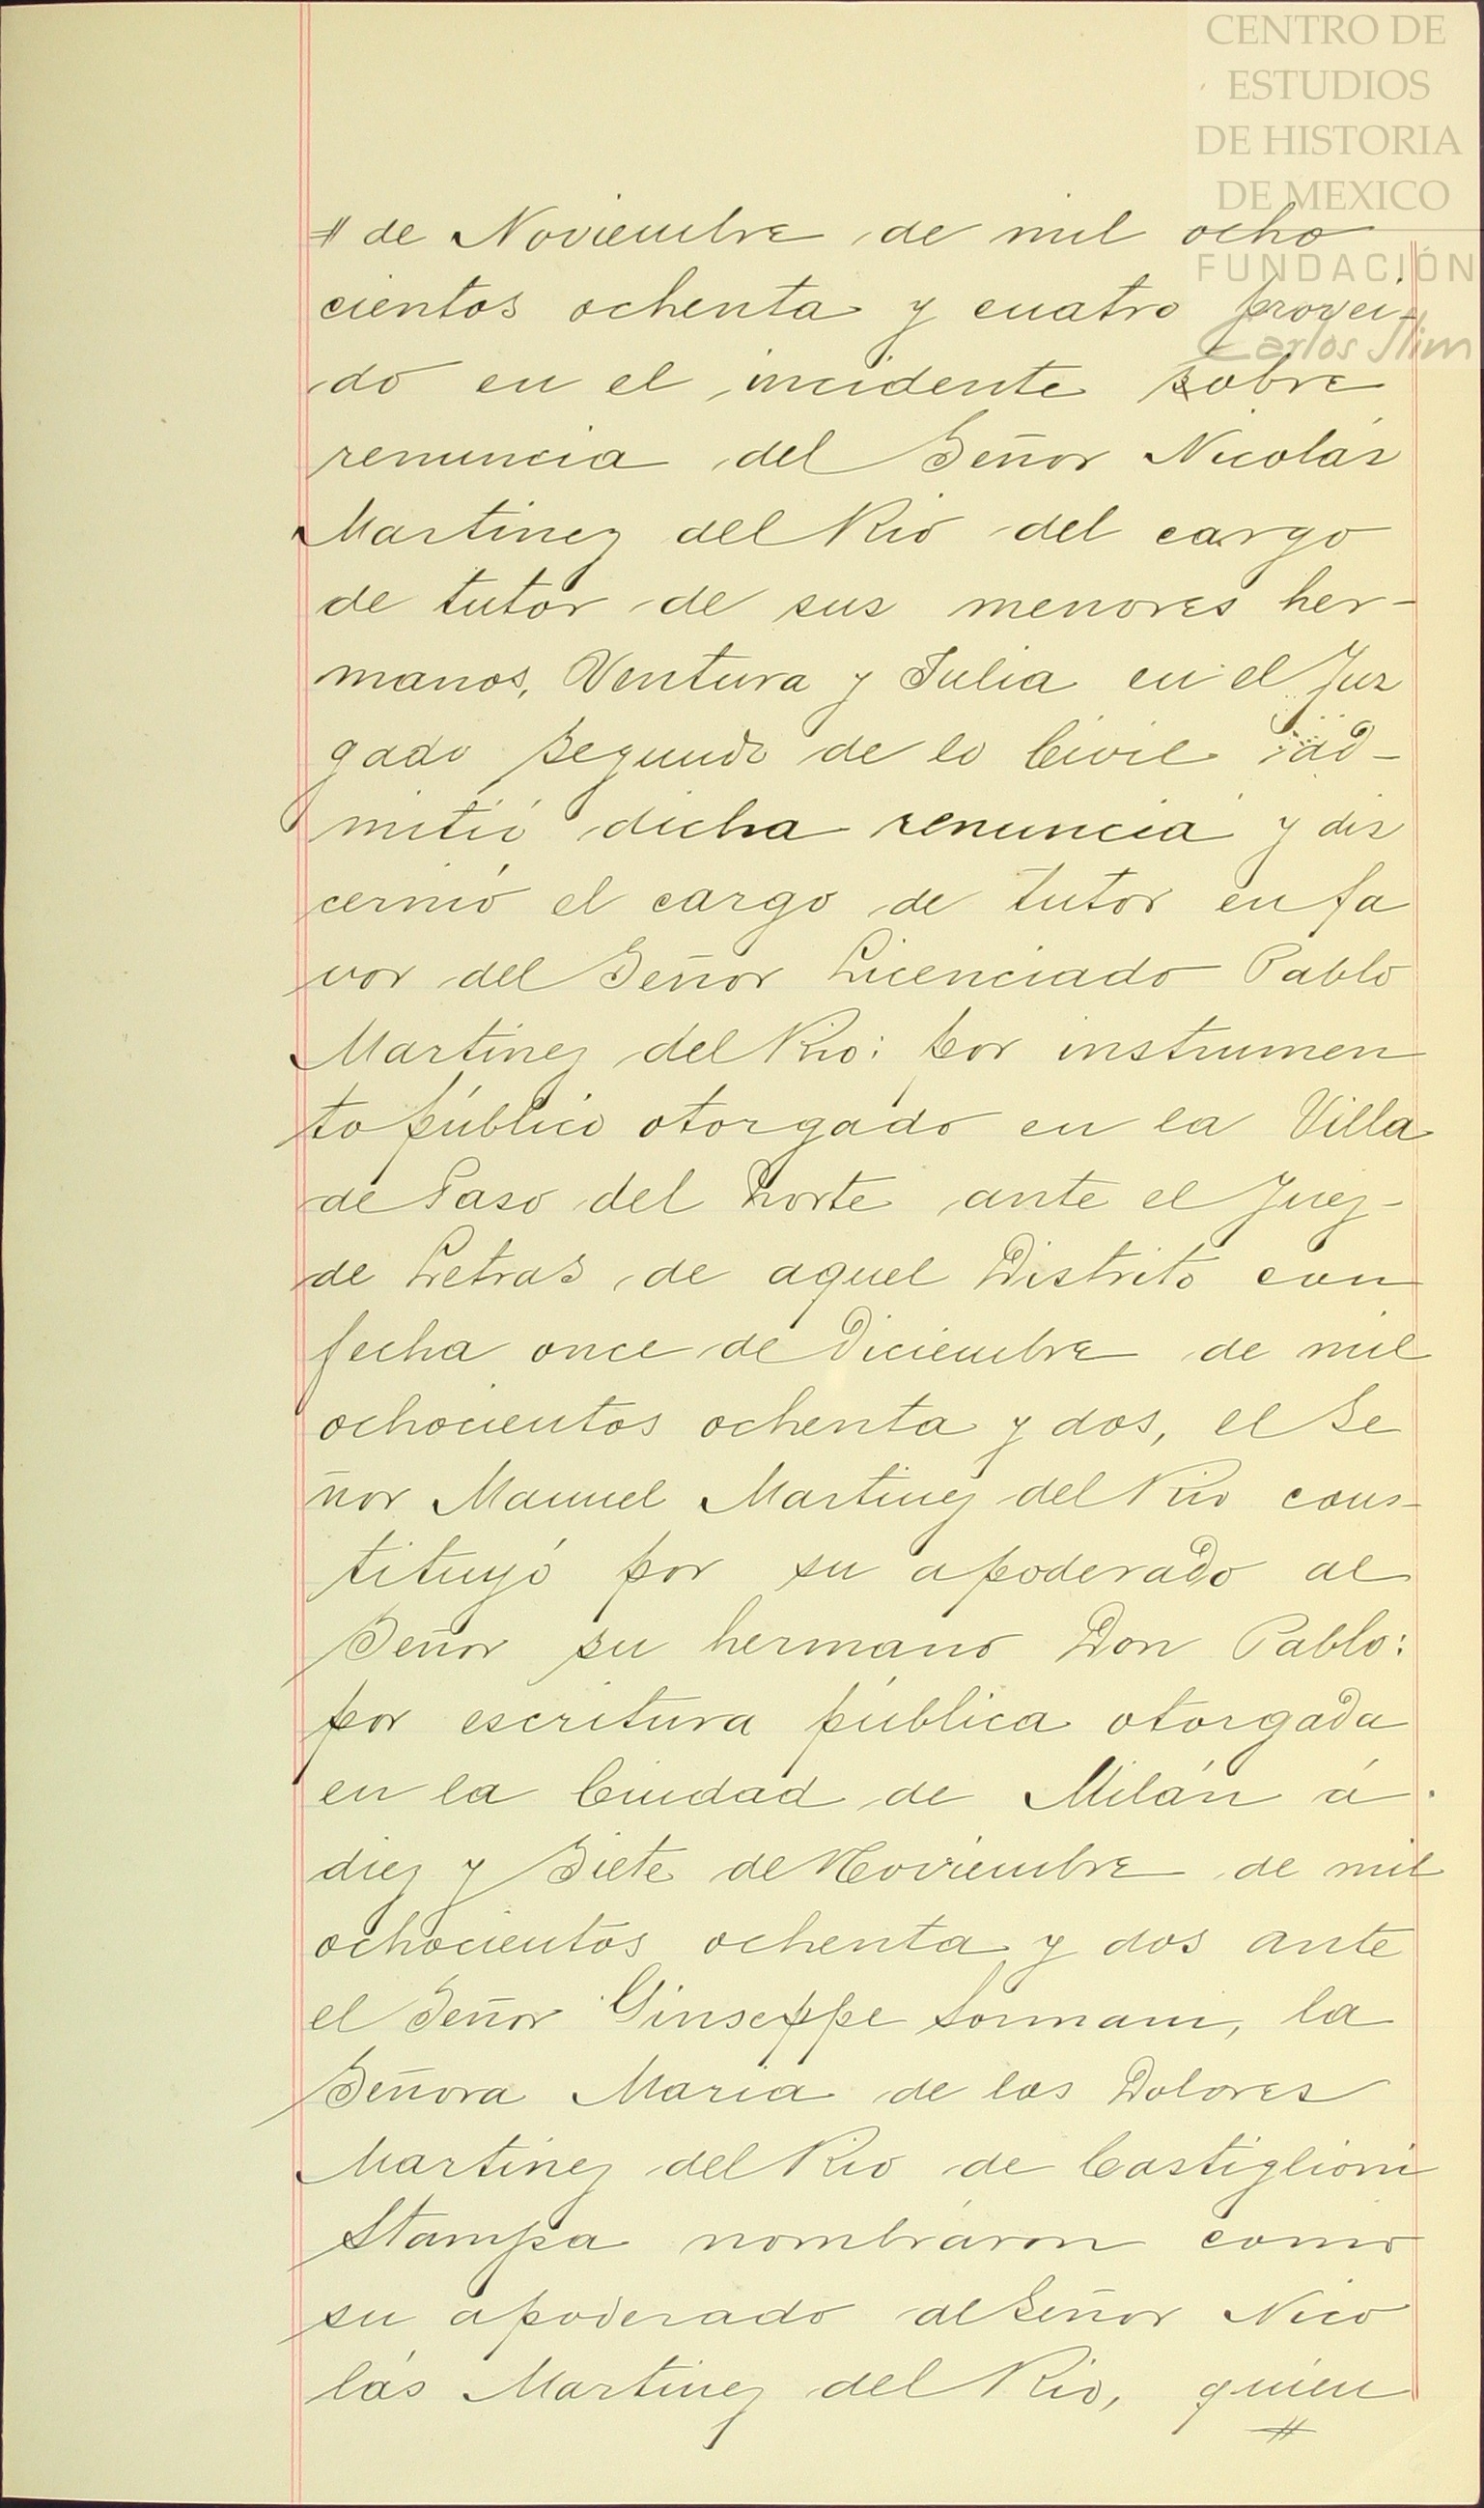 CENTRO DE
ESTUDIOS
DE HISTORIA
DE MEXICO
FUNDACIÓN
Carlos Slim
# de Noviembre de mil ocho
cientos ochenta y cuatro provei-
do en el incidente sobre
renuncia del Señor Nicolás
Martinez del Rio del cargo
de tutor de sus menores her-
manos, Ventura y Julia en el Juz
gado Segundo de lo Civil ad-
mitió dicha renuncia y dis
cernió el cargo de tutor en fa
vor del Señor Licenciado Pablo
Martinez del Rio: por instrumen
to público otorgado en la Villa
de Paso del Norte ante el Juez-
de Letras de aquel Distrito con
fecha once de Diciembre de mil
ochocientos ochenta y dos, el Se
ñor Manuel Martinez del Rio cons-
tituyó por su apoderado al
Señor su hermano Don Pablo:
por escritura pública otorgada
en la Ciudad de Milán á
diez y Siete de Noviembre de mil
ochocientos ochenta y dos ante
el Señor Ginseppe Sormani, la
Señora Maria de los Dolores
Martinez del Rio de Castiglioni
Stampa nombraron como
su apoderado al Señor Nico
lás Martinez del Rio, quien
#